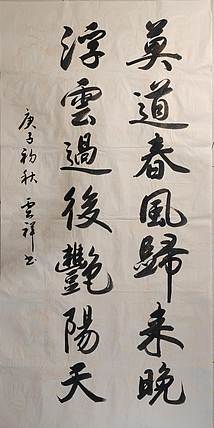 莫道春風歸来晚
浮雲過後艷陽天
庚子初秋雲祥书